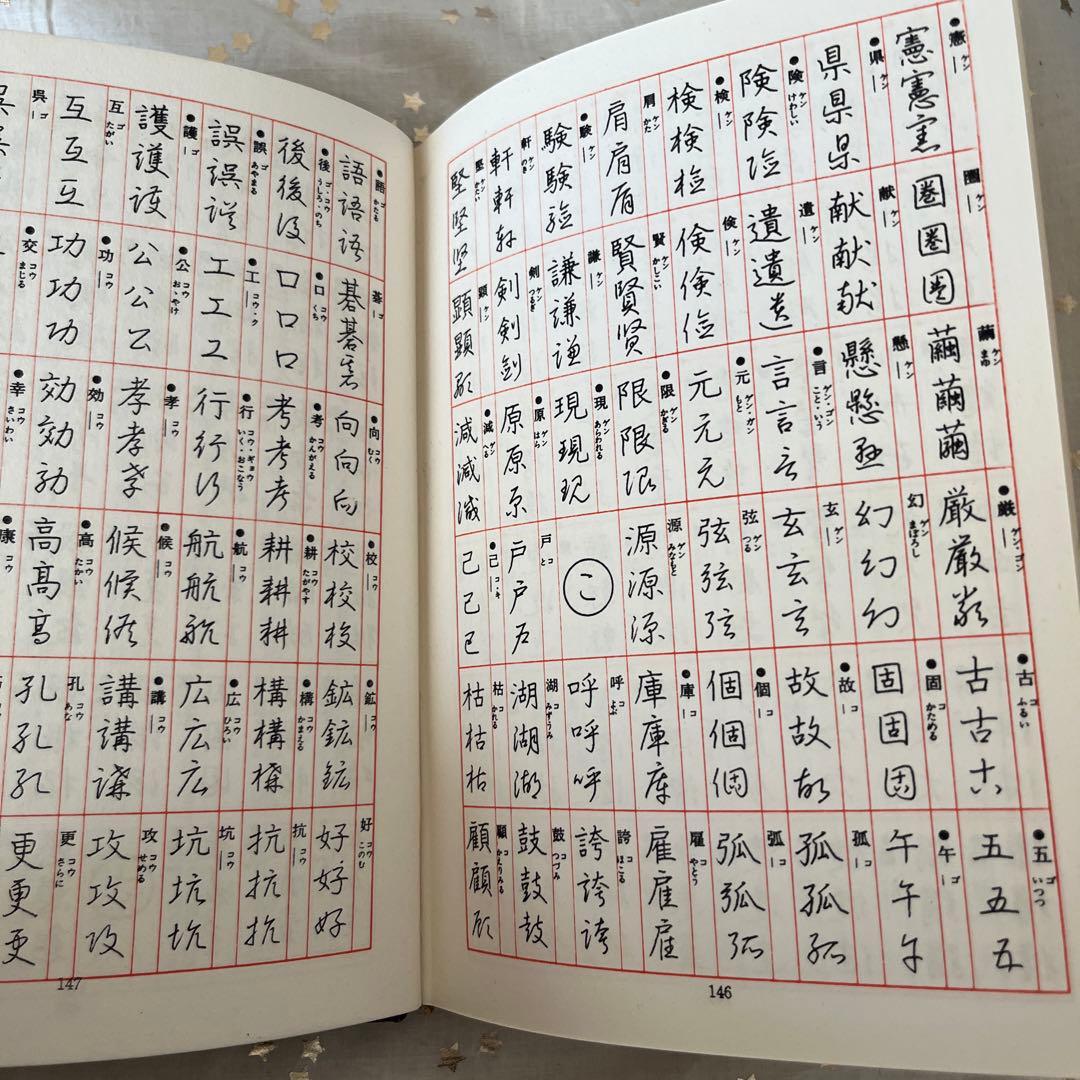 ●憲 ケン ―
憲憲憲
●県 ケン ―
県県県
●険 ケン けわしい
険険険
●検 ケン ―
検検検
肩 ケン かた
肩肩肩
●験 ケン ―
験験験
軒 ケン のき
軒軒軒
堅 ケン かたい
堅堅堅
圏 ケン ―
圏圏圏
献 ケン ―
献献献
遣 ケン ―
遣遣遣
倹 ケン ―
倹倹倹
賢 ケン かしこい
賢賢賢
謙 ケン ―
謙謙謙
剣 ケン つるぎ
剣剣剣
顕 ケン ―
顕顕顕
繭 ケン まゆ
繭繭繭
懸 ケン ―
懸懸懸
●言 ケン・ゴン こと・いう
言言言
●元 ゲン・ガン もと
元元元
●限 ゲン かぎる
限限限
●現 ゲン あらわれる
現現現
●原 ゲン はら
原原原
●減 ゲン へる
減減減
●厳 ゲン・ゴン ―
厳厳厳
幻 ゲン まぼろし
幻幻幻
玄 ゲン ―
玄玄玄
弦 ゲン つる
弦弦弦
源 ゲン みなもと
源源源
こ
戸 コ と
戸戸戸
●己 コ・キ ―
己己己
●古 コ ふるい
古古古
●固 コ かためる
固固固
●故 コ ―
故故故
●個 コ ―
個個個
●庫 コ ―
庫庫庫
呼 コ よぶ
呼呼呼
湖 コ みずうみ
湖湖湖
枯 コ かれる
枯枯枯
●五 ゴ いつつ
五五五
●午 ゴ ―
午午午
孤 コ ―
孤孤孤
弧 コ ―
弧弧弧
雇 コ やとう
雇雇雇
誇 コ ほこる
誇誇誇
鼓 コ つづみ
鼓鼓鼓
顧 コ かえりみる
顧顧顧
146
●語 ゴ かたる
語語語
●後 ゴ・コウ うしろ・のち
後後後
●誤 ゴ あやまる
誤誤誤
●護 ゴ ―
護護護
互 ゴ たがい
互互互
呉 ゴ ―
呉呉呉
碁 ゴ ―
碁碁碁
●口 コウ くち
口口口
●工 コウ・ク
工工工
●公 コウ おおやけ
公公公
●功 コウ ―
功功功
●交 コウ まじる
●向 コウ むく
向向向
●考 コウ かんがえる
考考考
●行 コウ・ギョウ いく・おこなう
行行行
●孝 コウ ―
孝孝孝
●効 コウ ―
効効効
●幸 コウ さいわい
●校 コウ ―
校校校
●耕 コウ たがやす
耕耕耕
●航 コウ ―
航航航
●候 コウ ―
候候候
●高 コウ たかい
高高高
●康 コウ ―
●鉱 コウ ―
鉱鉱鉱
●構 コウ かまえる
構構構
●広 コウ ひろい
広広広
●講 コウ ―
講講講
孔 コウ あな
孔孔孔
好 コウ このむ
好好好
抗 コウ ―
抗抗抗
坑 コウ ―
坑坑坑
攻 コウ せめる
攻攻攻
更 コウ さらに
更更更
147